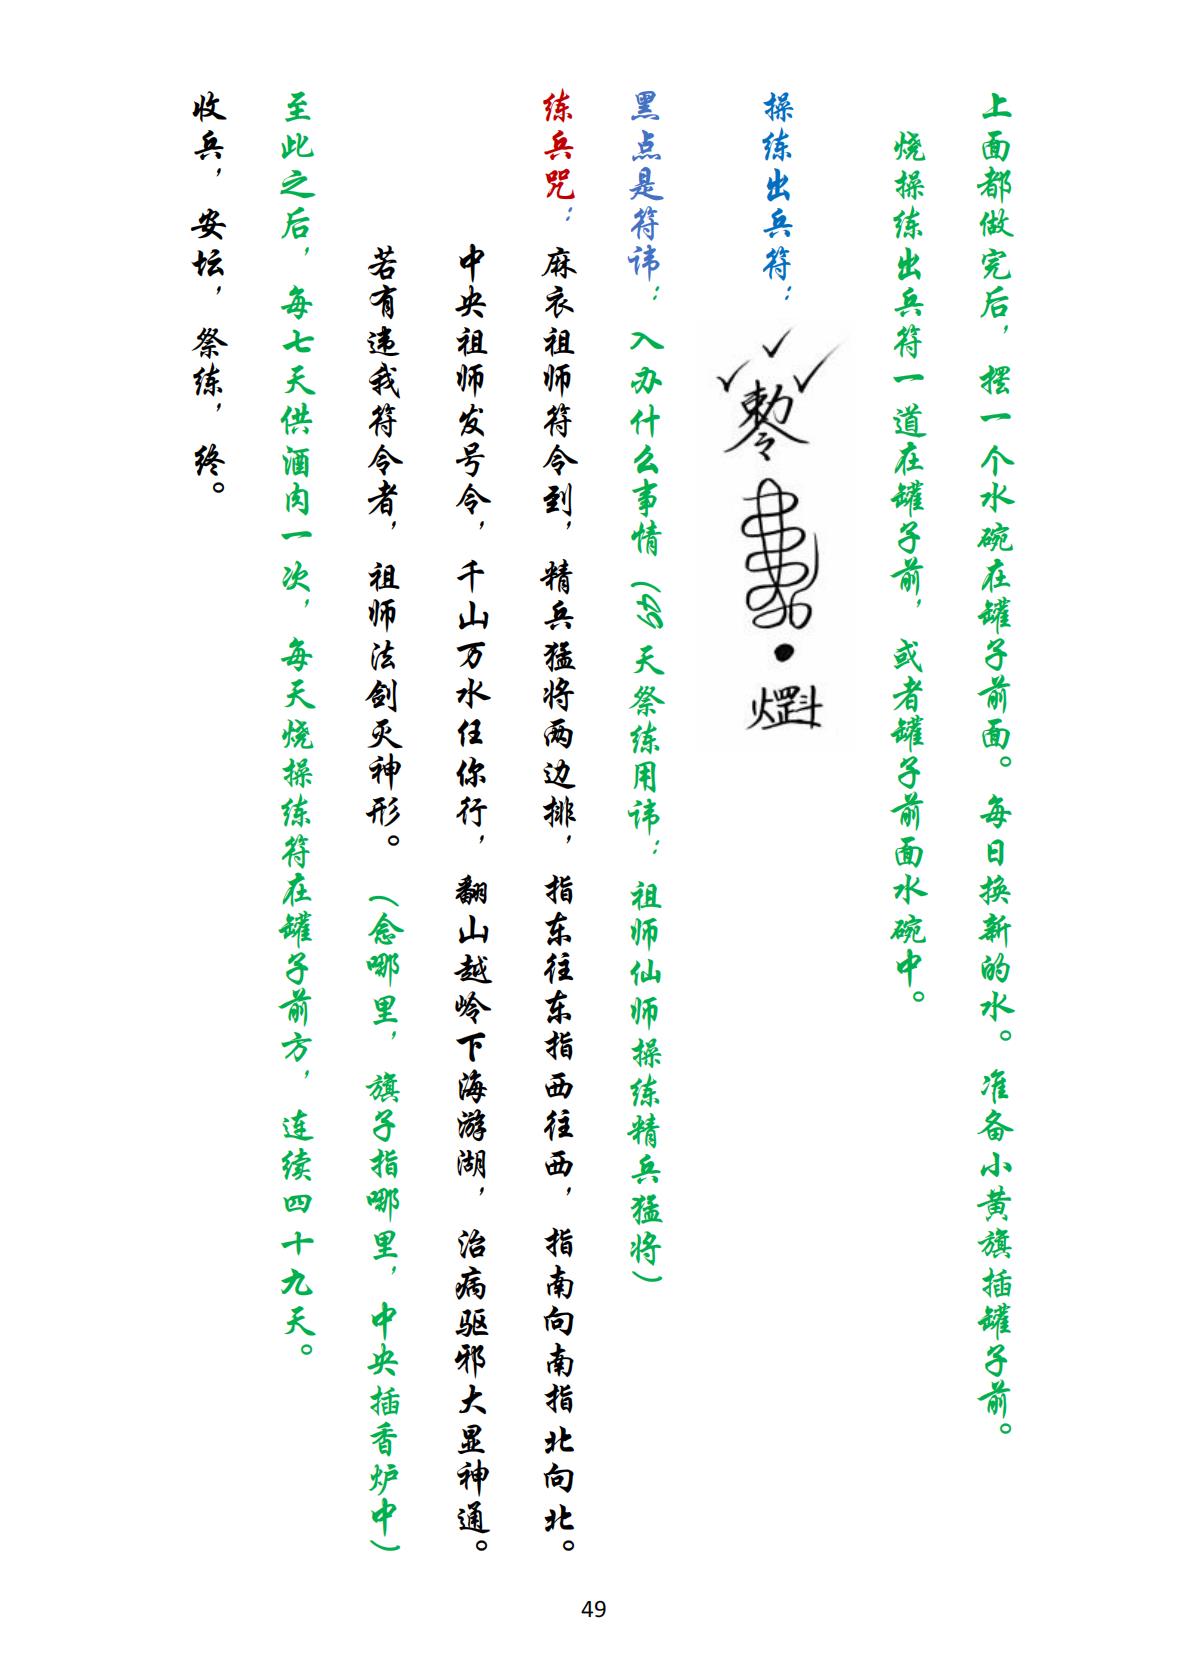 上面都做完后，摆一个水碗在罐子前面。每日换新的水。准备小黄旗插罐子前。
烧操练出兵符一道在罐子前，或者罐子前面水碗中。
操练出兵符：
黑点是符讳：入办什么事情（49天祭练用讳：祖师仙师操练精兵猛将）
练兵咒：麻衣祖师符令到，精兵猛将两边排，指东往东指西往西，指南向南指北向北。
中央祖师发号令，千山万水任你行，翻山越岭下海游湖，治病驱邪大显神通。
若有违我符令者，祖师法剑灭神形。（念哪里，旗子指哪里，中央插香炉中）
至此之后，每七天供酒肉一次，每天烧操练符在罐子前方，连续四十九天。
收兵，安坛，祭练，终。
49